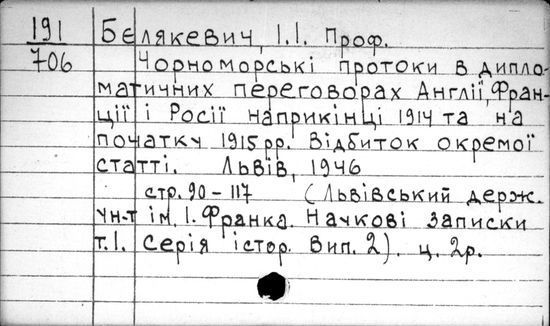 191
706
Бєлякевич, І.І. Проф.
Чорноморські протоки в дипло-
матичних переговорах Англії, Фран-
ції і Росії наприкінці 1914 та на
початку 1915 рр. Відбиток окремої
статті. Львів, 1946
стр. 90-117 (Львівський держ.
ун-т ім. І. Франка. Наукові записки
т. І. Серія істор. Вип. 2). ц. 2р.